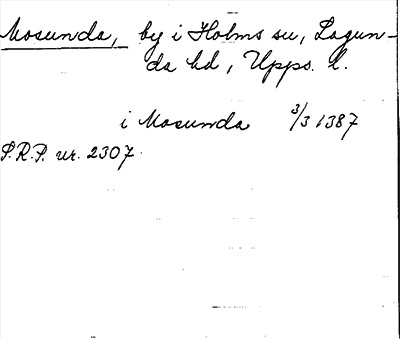 Mosunda, by i Holms sn, Lagun-
da hd, Upps. l.
i Mosunda 3/3 1387
S.R.P. nr. 2307.